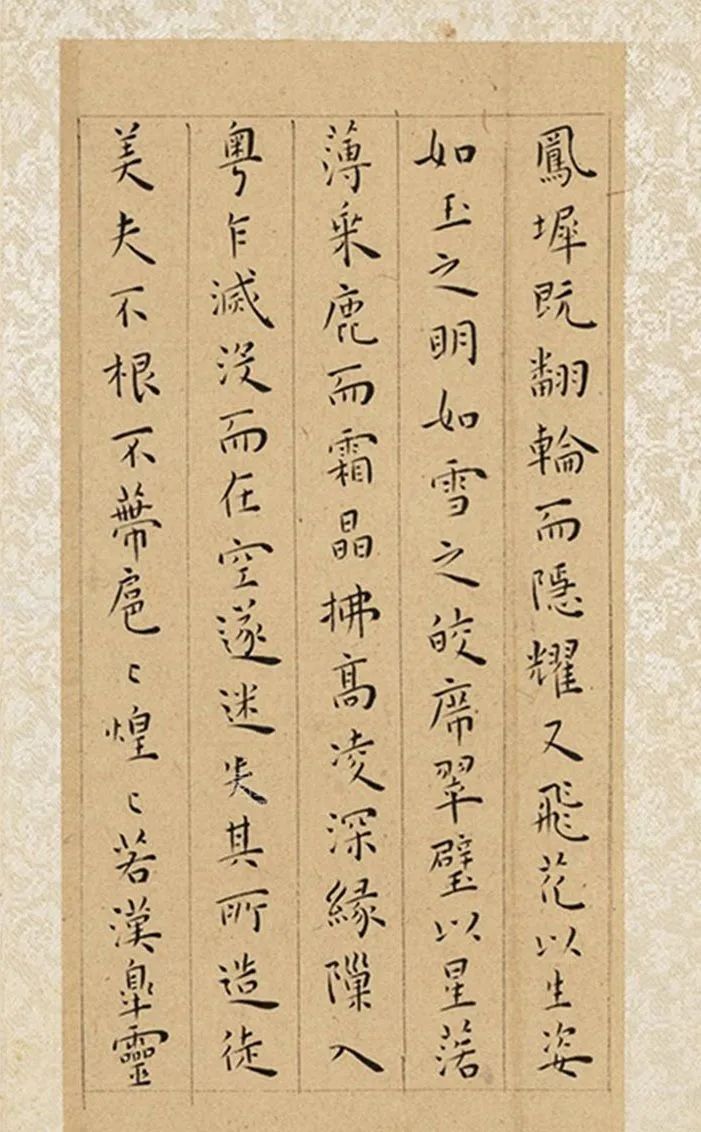 鳳墀既翻輪而隱耀又飛花以生姿
如玉之明如雪之皎席翠璧以星落
薄采鹿而霜晶拂高凌深緣隟入
粵乍滅没而在空遂迷失其所造徒
美夫不根不蔕扈〻煌〻若漢臯靈